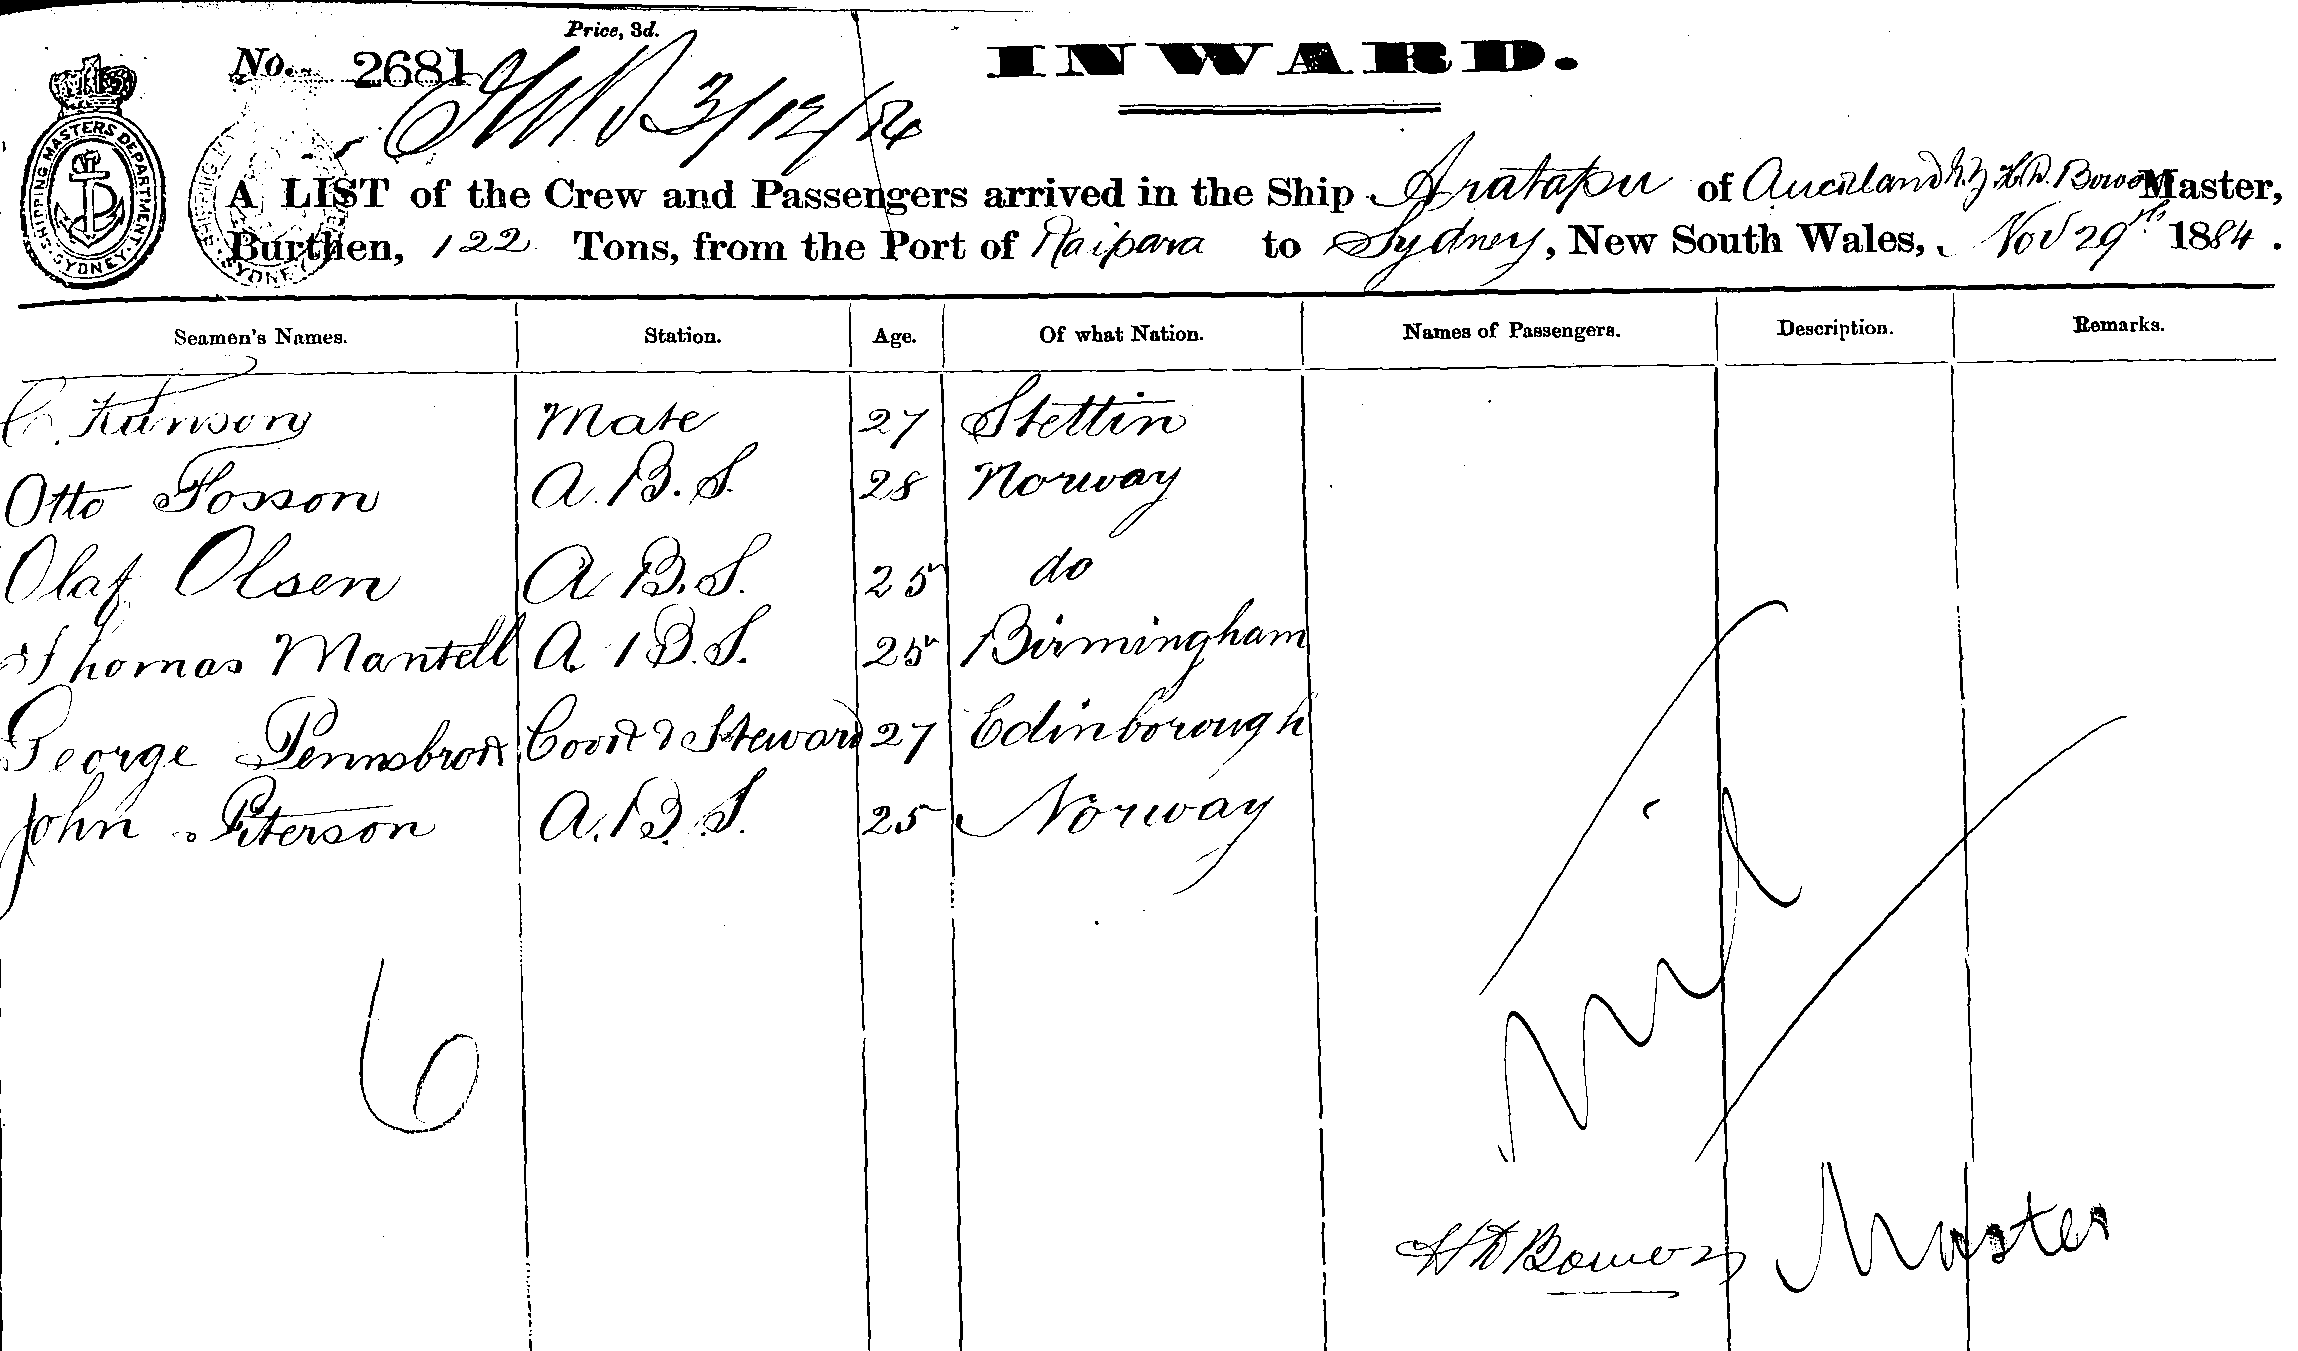 Price, 3d.
No. 2681
INWARD.
3/12/84
SHIPPING MASTERS DEPARTMENT SYDNEY
A LIST of the Crew and Passengers arrived in the Ship Aratapu of Auckland N.Z H.D. Bowers Master,
Burthen, 122 Tons, from the Port of Kaipara to Sydney, New South Wales, Nov 29th 1884.
Seamen's Names. Station. Age. Of what Nation. Names of Passengers. Description. Remarks.
Mate 27 Stettin
Otto Fosson A.B.S. 28 Norway
Olaf Olsen A B.S. 25 do
Thomas Mantell A B.S. 25 Birmingham
George Pennsbrook Cook & Steward 27 Edinborough
John Peterson A.B.S. 25 Norway
Nil
6
H D Bowers Master